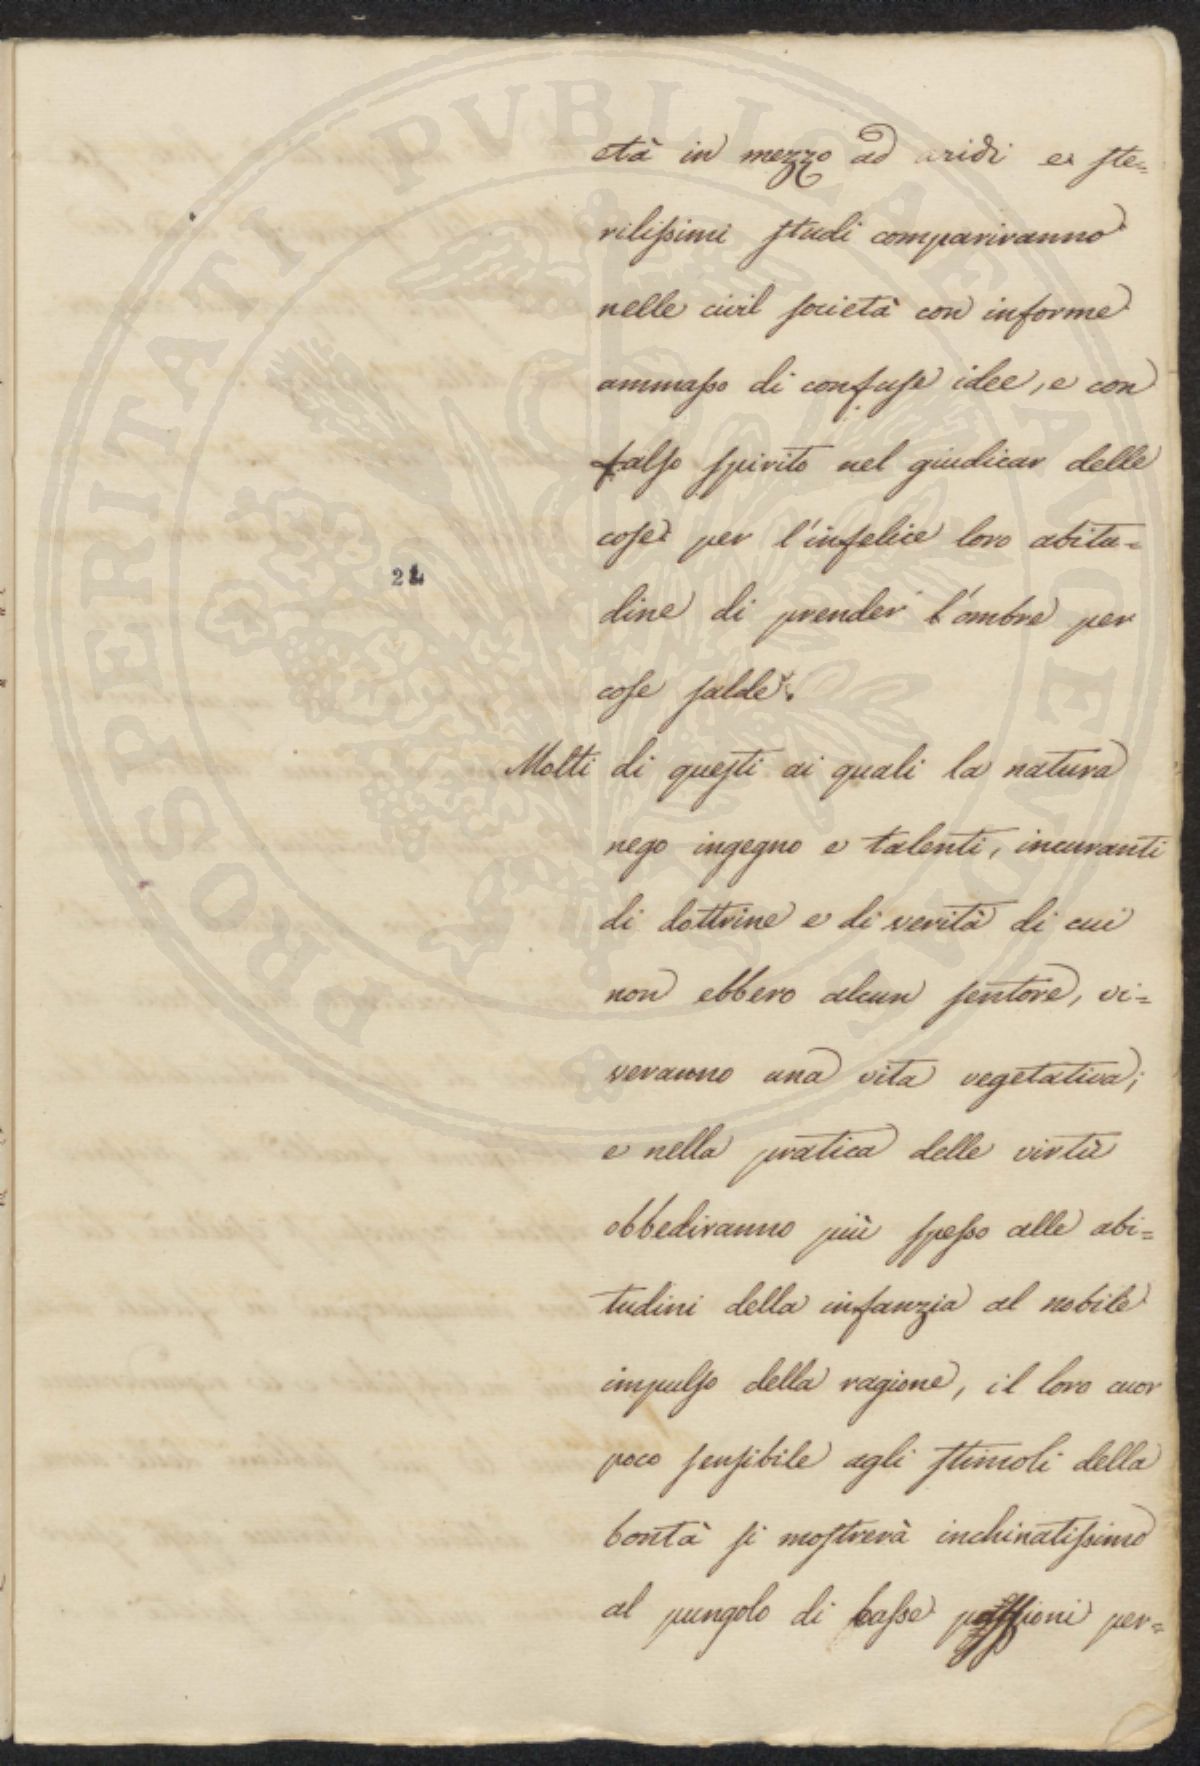 PROSPERITATI PVBLICAE AVGENDAE
età in mezzo ad aridi e ste=
rilissimi studi compariranno
nelle civil società con informe
ammasso di confuse idee, e con
falso spirito nel giudicar delle
cose per l'infelice loro abitu=
dine di prender l'ombre per
cose salde.
21
Molti di questi ai quali la natura
nego ingegno e talenti, incuranti
di dottrine e di verità di cui
non ebbero alcun sentore, vi=
veranno una vita vegetativa;
e nella pratica delle virtù
obbediranno più spesso alle abi=
tudini della infanzia al nobile
impulso della ragione, il loro cuor
poco sensibile agli stimoli della
bontà si mostrerà inchinatissimo
al pungolo di basse passioni per=